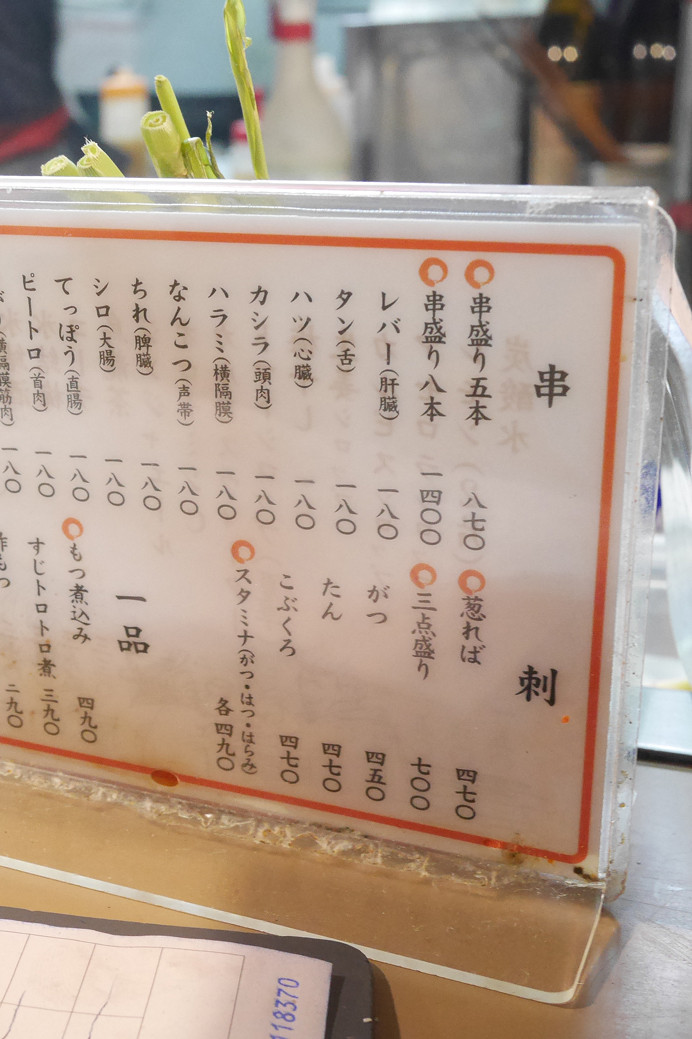 串
串盛り五本 八七〇
串盛り八本 一四〇〇
レバー(肝臓) 一八〇
タン(舌) 一八〇
ハツ(心臓) 一八〇
カシラ(頭肉) 一八〇
ハラミ(横隔膜) 一八〇
なんこつ(声帯) 一八〇
ちれ(脾臓) 一八〇
シロ(大腸) 一八〇
てっぽう(直腸) 一八〇
ピートロ(首肉) 一八〇
(横隔膜筋肉) 一八〇
刺
葱れば 四七〇
三点盛り 七〇〇
がつ 四五〇
たん 四七〇
こぶくろ 四七〇
スタミナ(がつ・はつ・はらみ)
各四九〇
一品
もつ煮込み 四九〇
すじトロトロ煮 三九〇
酢もつ 二九〇
炭酸水
118370